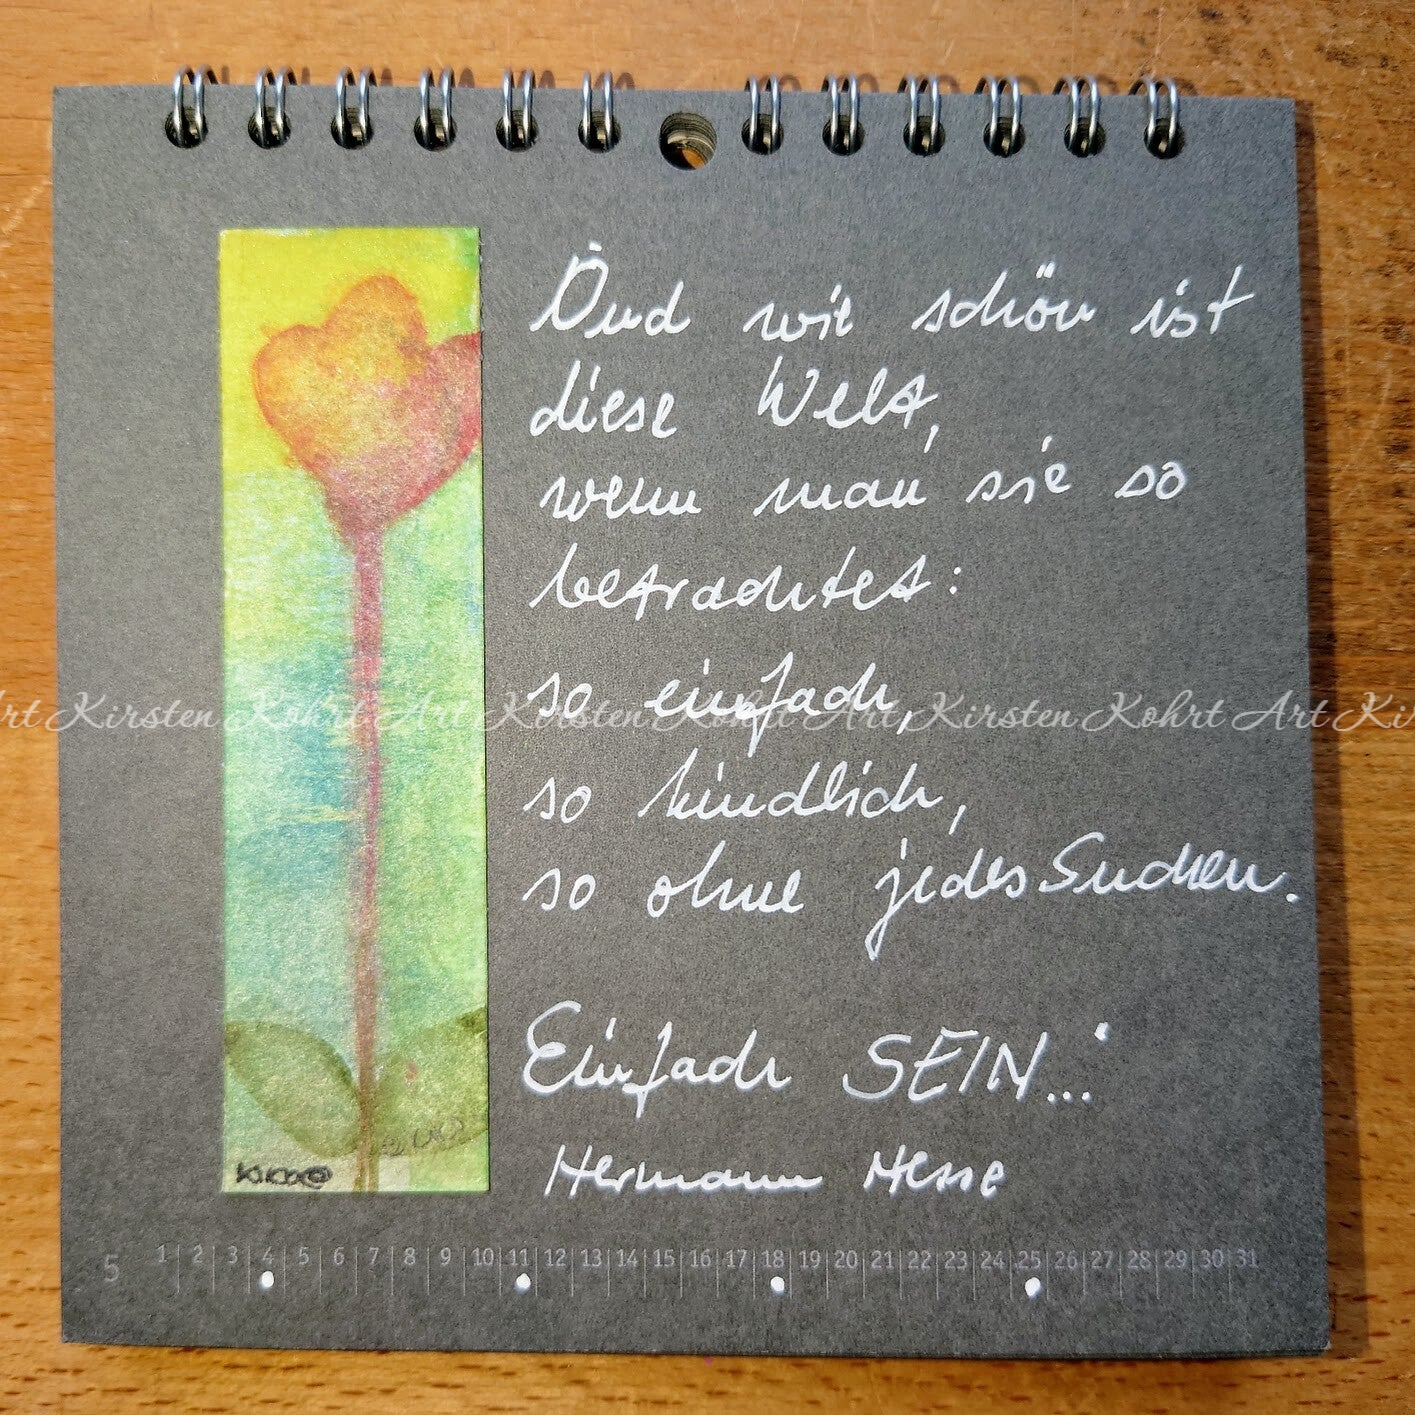 Und wie schön ist
diese Welt,
wenn man sie so
betrachtet:
so einfach,
rt Kirsten Kohrt Art Kirsten Kohrt Art Ki
so kindlich,
so ohne jedes Suchen.
Einfach SEIN...
Hermann Hesse
5 1 2 3 4 5 6 7 8 9 10 11 12 13 14 15 16 17 18 19 20 21 22 23 24 25 26 27 28 29 30 31